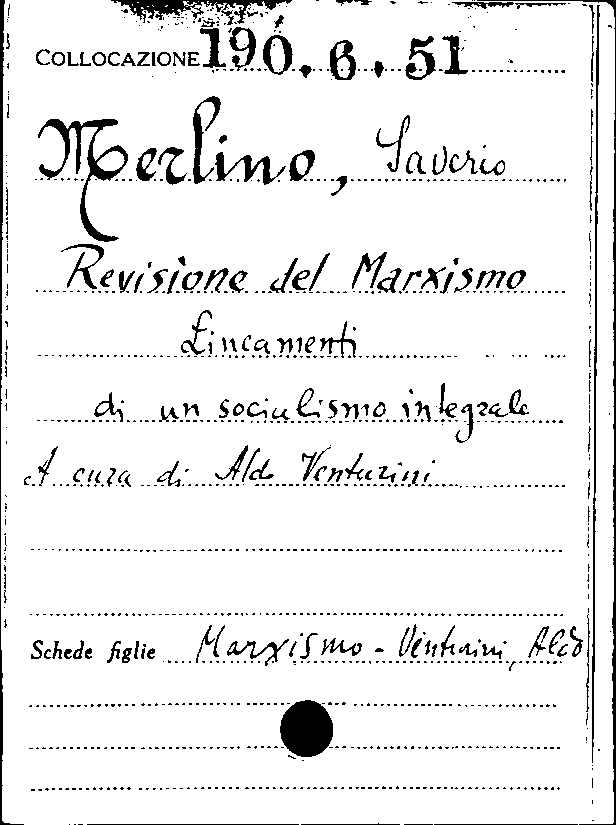 COLLOCAZIONE 190.6.51
Merlino, Saverio
Revisione del Marxismo
Lineamenti
di un socialismo integrale
A cura di Aldo Venturini
Schede figlie Marxismo - Venturini, Aldo